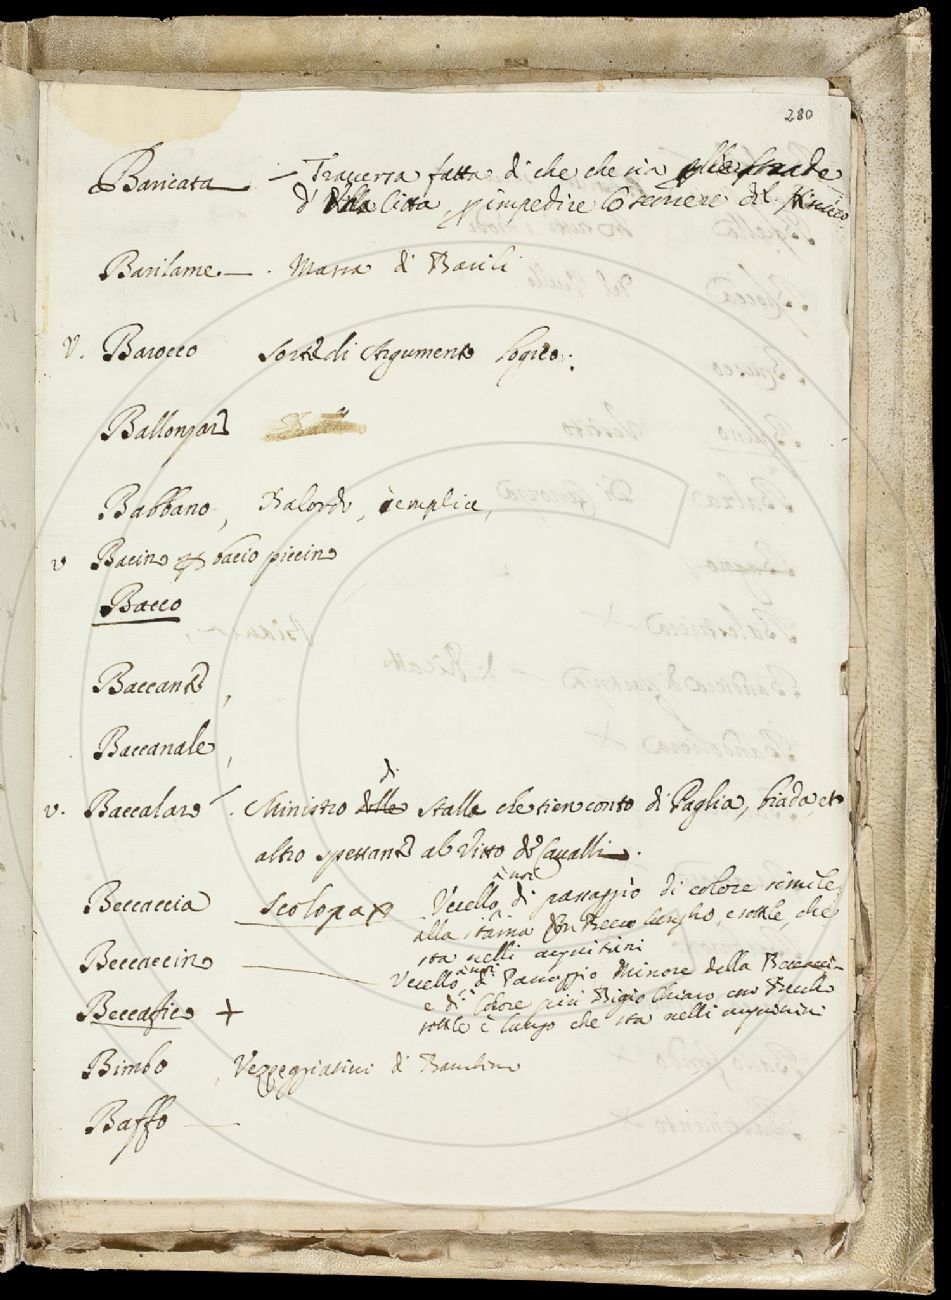 280
Baricata — Traversa fatta di che che sia
Città, impedire
Barilame — . Massa di Barili
V. Barocco Sorte di Argumento Logico .
Ballonzare
Babbano , Balordo , semplice ,
v Bacino bacio piccino
Bacco
Baccante ,
Baccanale ,
di
v. Baccalare . Ministro delle stalle che tien conto di Paglia, biada, et
altro spettante al Vitto de Cavalli .
Beccaccia Scolopax Uccello di passaggio di colore simile
alla starna Becco lungho, e sottile, che
sta nelli acquitrini
Beccaccino — Uccello di Passaggio Minore della
e di Colore più Bigio Chiaro con Becco
Beccafico + sottile e lungo che sta nelli acquitrini
Bimbo , Vezzegiativo di Bambino
Baffo —